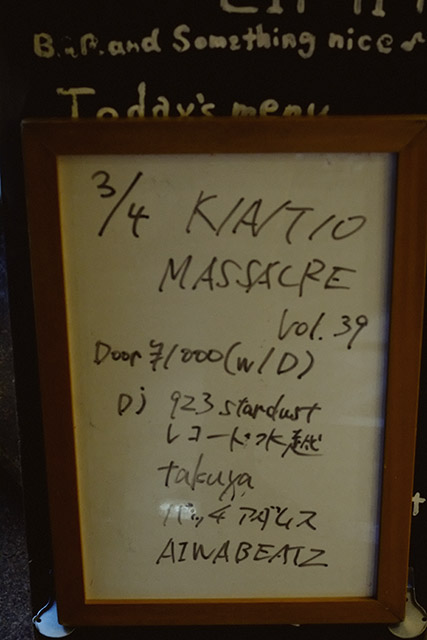 B.G.M. and Something nice♪
Today's menu
3/4 K/A/T/O
MASSACRE
Vol. 39
Door ¥1000 (w/D)
DJ 923stardust
レコード水越
takuya
パッチアダムス
AIWABEATZ